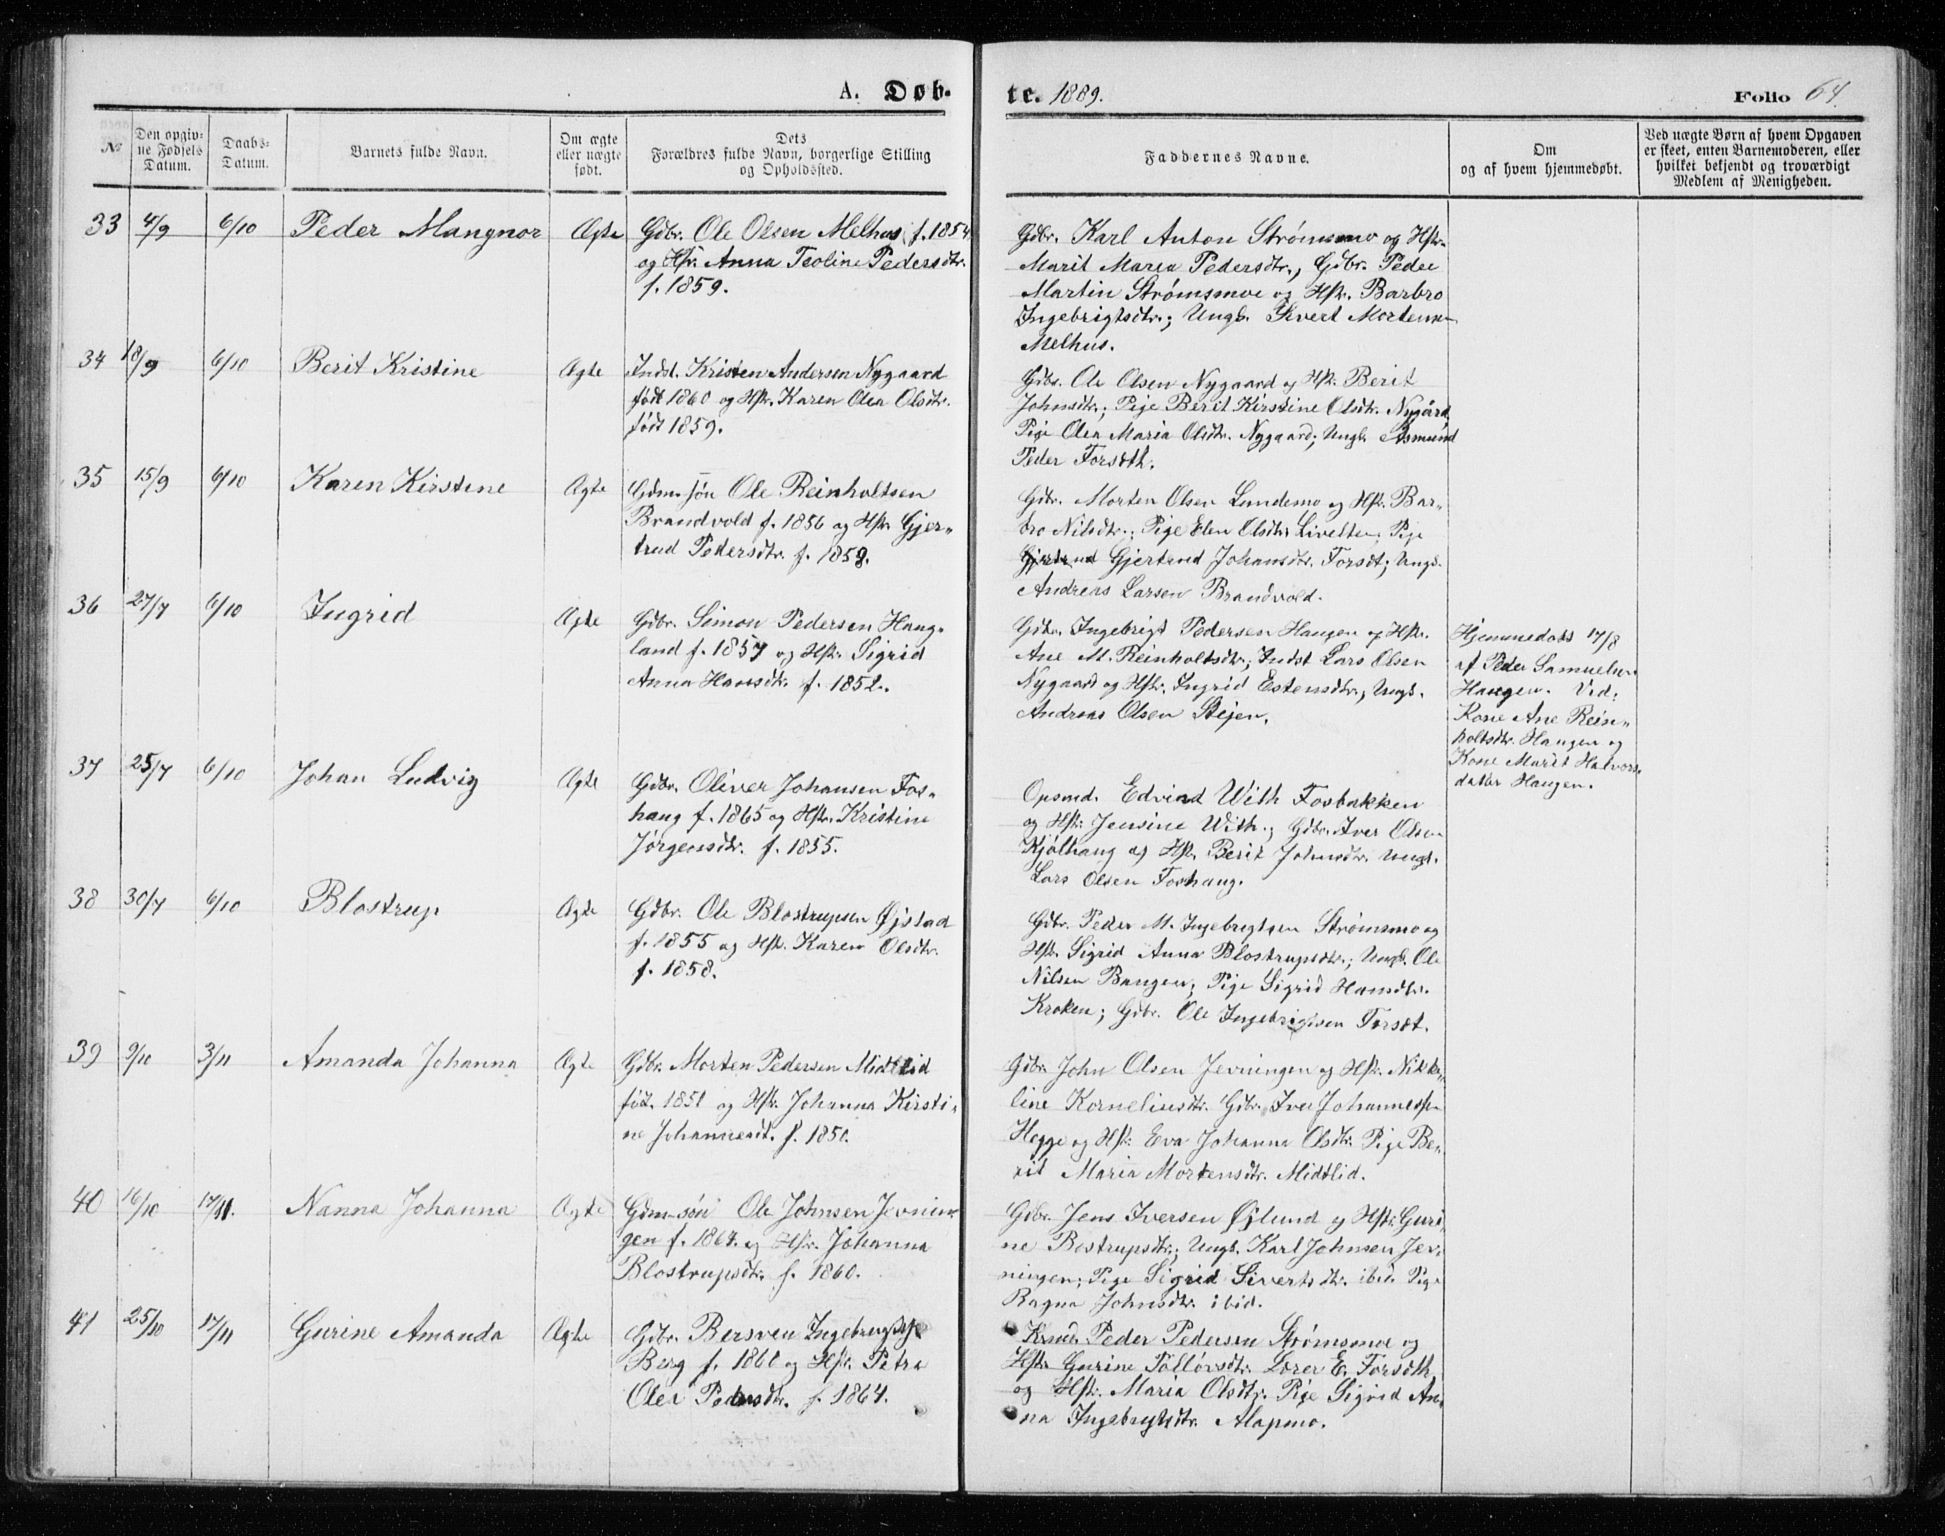 A. Døb-
te. 1889.
Folio 64.
№
Den opgiv-
ne Fødsels
Datum.
Daabs-
Datum.
Barnets fulde Navn.
Om ægte
eller uægte
født.
Dets
Forældres fulde Navn, borgerlige Stilling
og Opholdssted.
Faddernes Navne.
Om
og af hvem hjemmedøbt.
Ved uægte Børn af hvem Opgaven
er skeet, enten Barnemoderen, eller
hvilket bekjendt og troværdigt
Medlem af Menigheden.
33 4/9 6/10 Peder Mangnor Ægte
Gdbr. Ole Olsen Melhus f. 1854
og Hst. Anna Teoline Pedersdtr.
f. 1859.
Gdbr. Karl Anton Strømsmo og Hst.
Marit Maria Pedersdtr., Gdbr. Peder
Martin Strømsmoe og Hst. Barbro
Ingebrigtsdtr.; Ungk. Sivert Mortensen
Melhus.
34 18/9 6/10 Berit Kristine Ægte
Indst. Kristen Andersen Nygaard
født 1860 og Hst. Karen Olea Olsdtr.
født 1859.
Gdbr. Ole Olsen Nygaard og Hst. Berit
Johnsdtr.; Pige Berit Kirstine Olsdtr. Nygård
Pige Olea Maria Olsdtr. Nygaard; Ungk. Asmund
Peder Forsæth.
35 15/9 6/10 Karen Kirstine Ægte
Gdm. søn Ole Reinholtsen
Brandvold f. 1856 og Hst. Gjer-
trud Pedersdtr. f. 1859.
Gdbr. Morten Olsen Lundemo og Hst. Bar-
bro Nilsdtr.; Pige Elen Olsdtr. Livelten; Pige
Gjertrud Gjertrud Johansdtr. Forsæt; Ungk.
Andreas Larsen Brandvold.
36 27/7 6/10 Ingrid Ægte
Gdbr. Simon Pedersen Haug-
land f. 1857 og Hst. Sigrid
Anna Hansdtr. f. 1852.
Gdbr. Ingebrigt Pedersen Haugen og Hst.
Ane M. Reinholtsdtr.; Indst Lars Olsen
Nygaard og Hst. Ingrid Estensdtr., Ungk.
Andreas Olsen Stejen.
Hjemmedøbt 17/8
af Peder Samuelsen
Haugen. Vid:
Kone Ane Rein-
holtsdtr. Haugen og
Kone Marit Halvors-
datter Haugen.
37 25/7 6/10 Johan Ludvig Ægte
Gdbr. Oliver Johansen Fos-
haug f. 1865 og Hst. Kristine
Jørgensdtr. f. 1855.
Opsmd. Edvind With Fosbakken
og Hst. Jensine With.; Gdbr. Iver Olsen
Kjølhaug og Hst. Berit Johnsdtr. Ungk.
Lars Olsen Foshaug.
38 30/7 6/10 Blostrup Ægte
Gdbr. Ole Blostrupsen Øjstad
f. 1855 og Hst. Karen Olsdtr.
f. 1858.
Gdbr. Peder M. Ingebrigtsen Strømsmo og
Hst. Sigrid Anna Blostrupsdtr.; Ungk. Ole
Nilsen Bangen; Pige Sigrid Hansdtr.
Kroken; Gdbr. Ole Ingebrigtsen Forsæt.
39 9/10 3/11 Amanda Johanna Ægte
Gdbr. Morten Pedersen Midtlid
født 1851 og Hst. Johanna Kirsti-
ne Johannesdt. f. 1850.
Gdbr. John Olsen Jevningen og Hst. Nikko-
line Korneliusdtr. Gdbr. Iver Johannessen
Hegge og Hst. Eva Johanna Olsdtr. Pige Be-
rit Maria Mortensdtr. Midtlid.
40 16/10 17/11. Nanna Johanna Ægte
Gdm-søn Ole Johnsen Jevnin-
gen f. 1864. og Hst. Johanna
Blostrupsdtr. f. 1860.
Gdbr. Jens Iversen Øjlund og Hst. Guri-
ne Bostrupsdtr.; Ungk. Karl Johnsen Jev-
ningen; Pige Sigrid Sivertsdtr. ibid. Pige
Ragna Johnsdtr. ibid.
41 25/10 17/11 Gurine Amanda Ægte
Gdbr. Bersven Ingebrigts.
Berg f. 1860 og Hst. Petra
Olea Pedersdtr. f. 1864.
Peder Pedersen Strømsmoe og
Hst. Gurine Tolløvsdtr. Lærer E. Forsæth
og Hst. Maria Olsdtr. Pige Sigrid An-
na Ingebrigtsdtr. Alapmo.